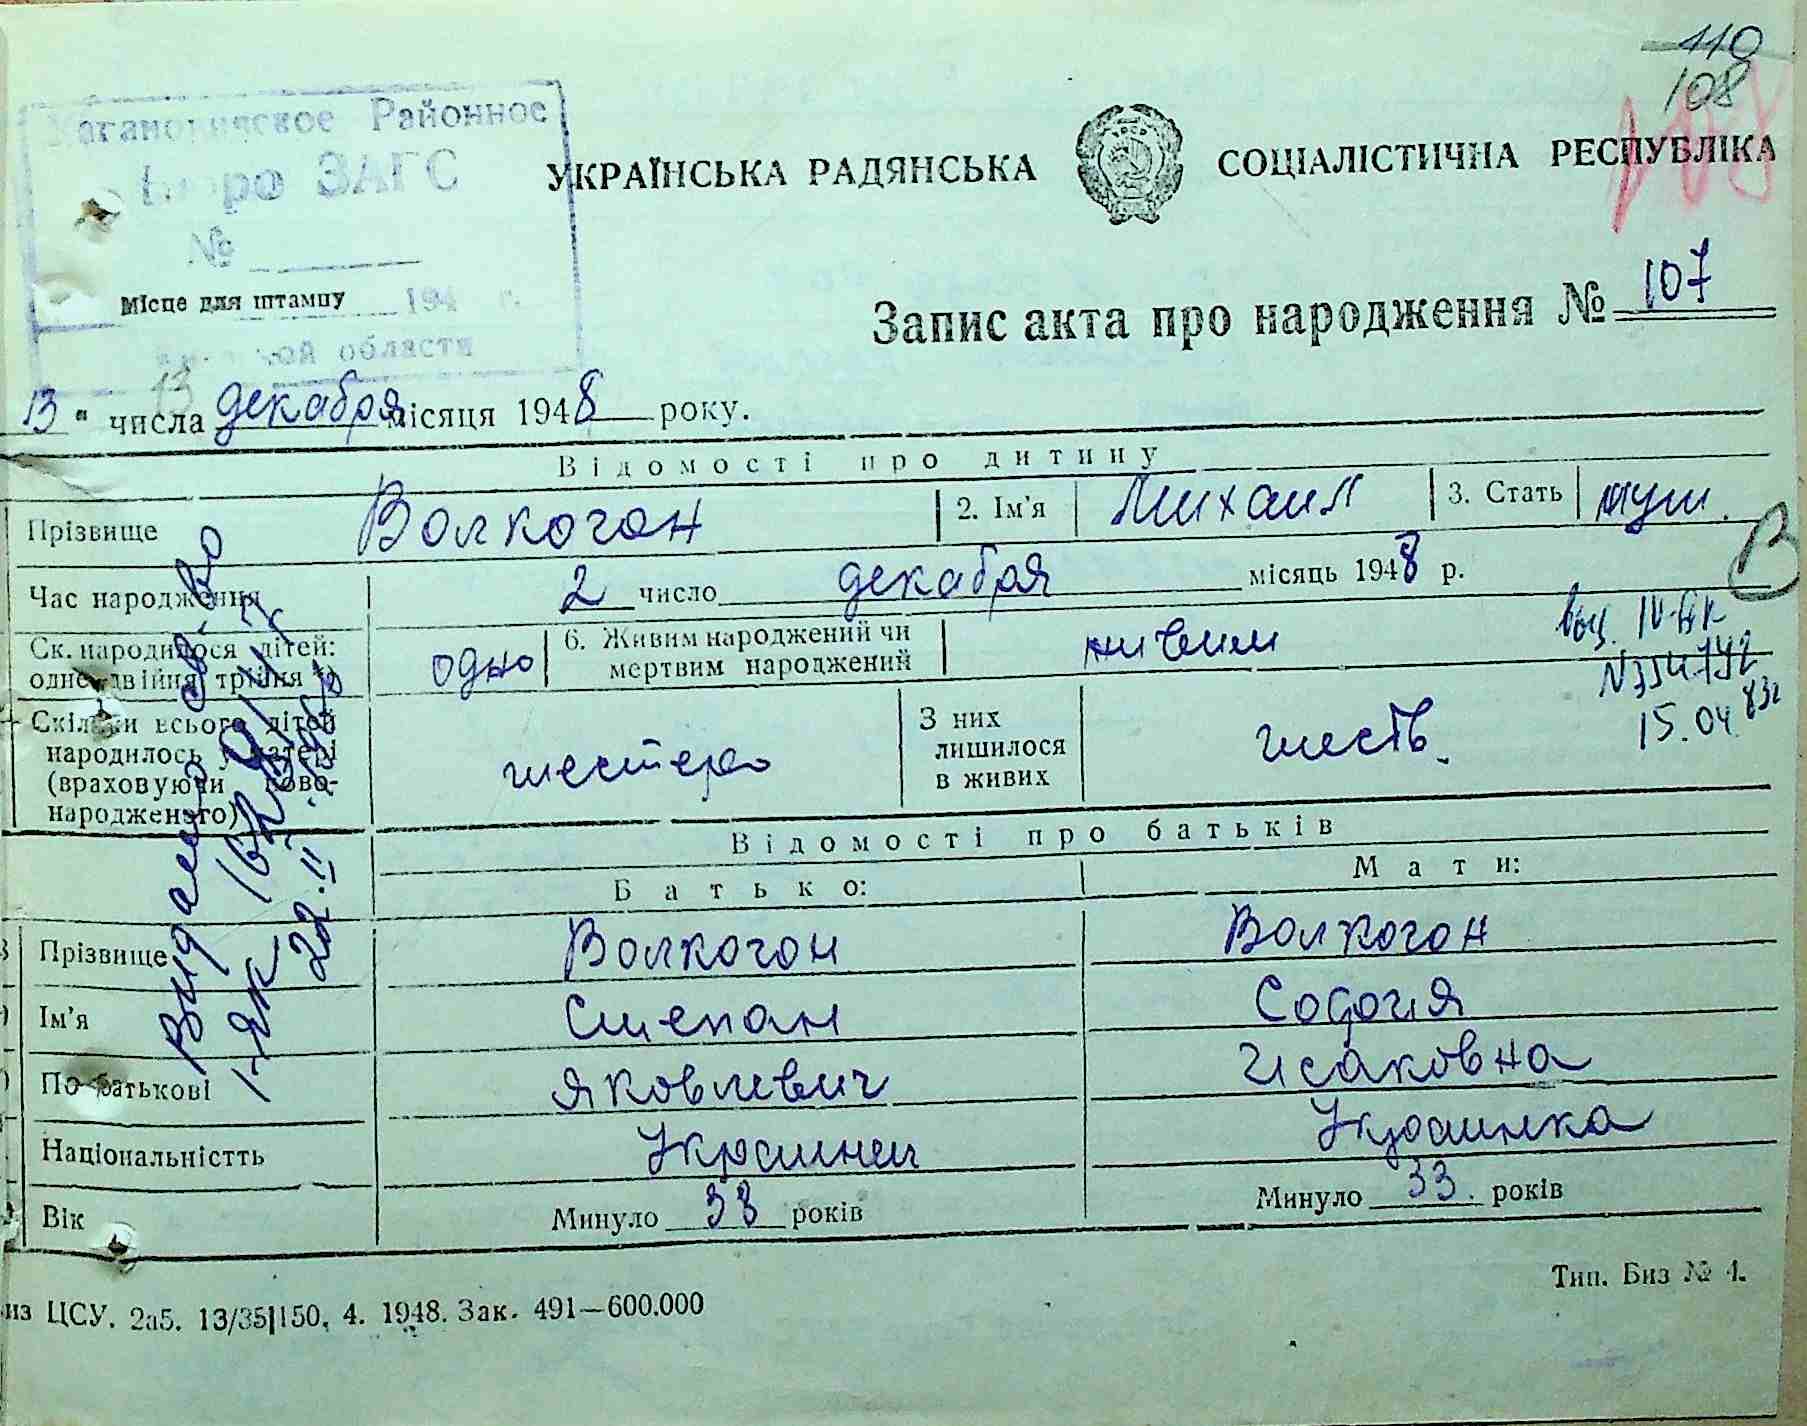 110
108
Районное
Бюро ЗАГС
№
Місце для штампу 194 г.
области
УКРАЇНСЬКА РАДЯНСЬКА СОЦІАЛІСТИЧНА РЕСПУБЛІКА
Запис акта про народження № 107
13
13 " числа декабря місяця 1948 року.
Відомості про дитину
Прізвище Волкогон 2. Ім'я Михаил 3. Стать муж.
В
Час народження 2 число декабря місяць 1948 р.
Ск. народилося дітей: одно 6. Живим народжений чи живим
одне двійня трійня мертвим народжений
IV-БК
N 354792
15.04 83г
Скільки всього дітей шестеро З них шесть.
народилось у матері лишилося
(враховуючи ново- в живих
народженого)
Видано св-во
I-ЯК
22.II.
Відомості про батьків
Батько: Мати:
Прізвище Волкогон Волкогон
Ім'я Степан София
По батькові Яковлевич Исаковна
Національністть Украинец Украинка
Вік Минуло 38 років Минуло 33. років
Тип. Биз № 4.
из ЦСУ. 2а5. 13/35|150, 4. 1948. Зак. 491—600.000